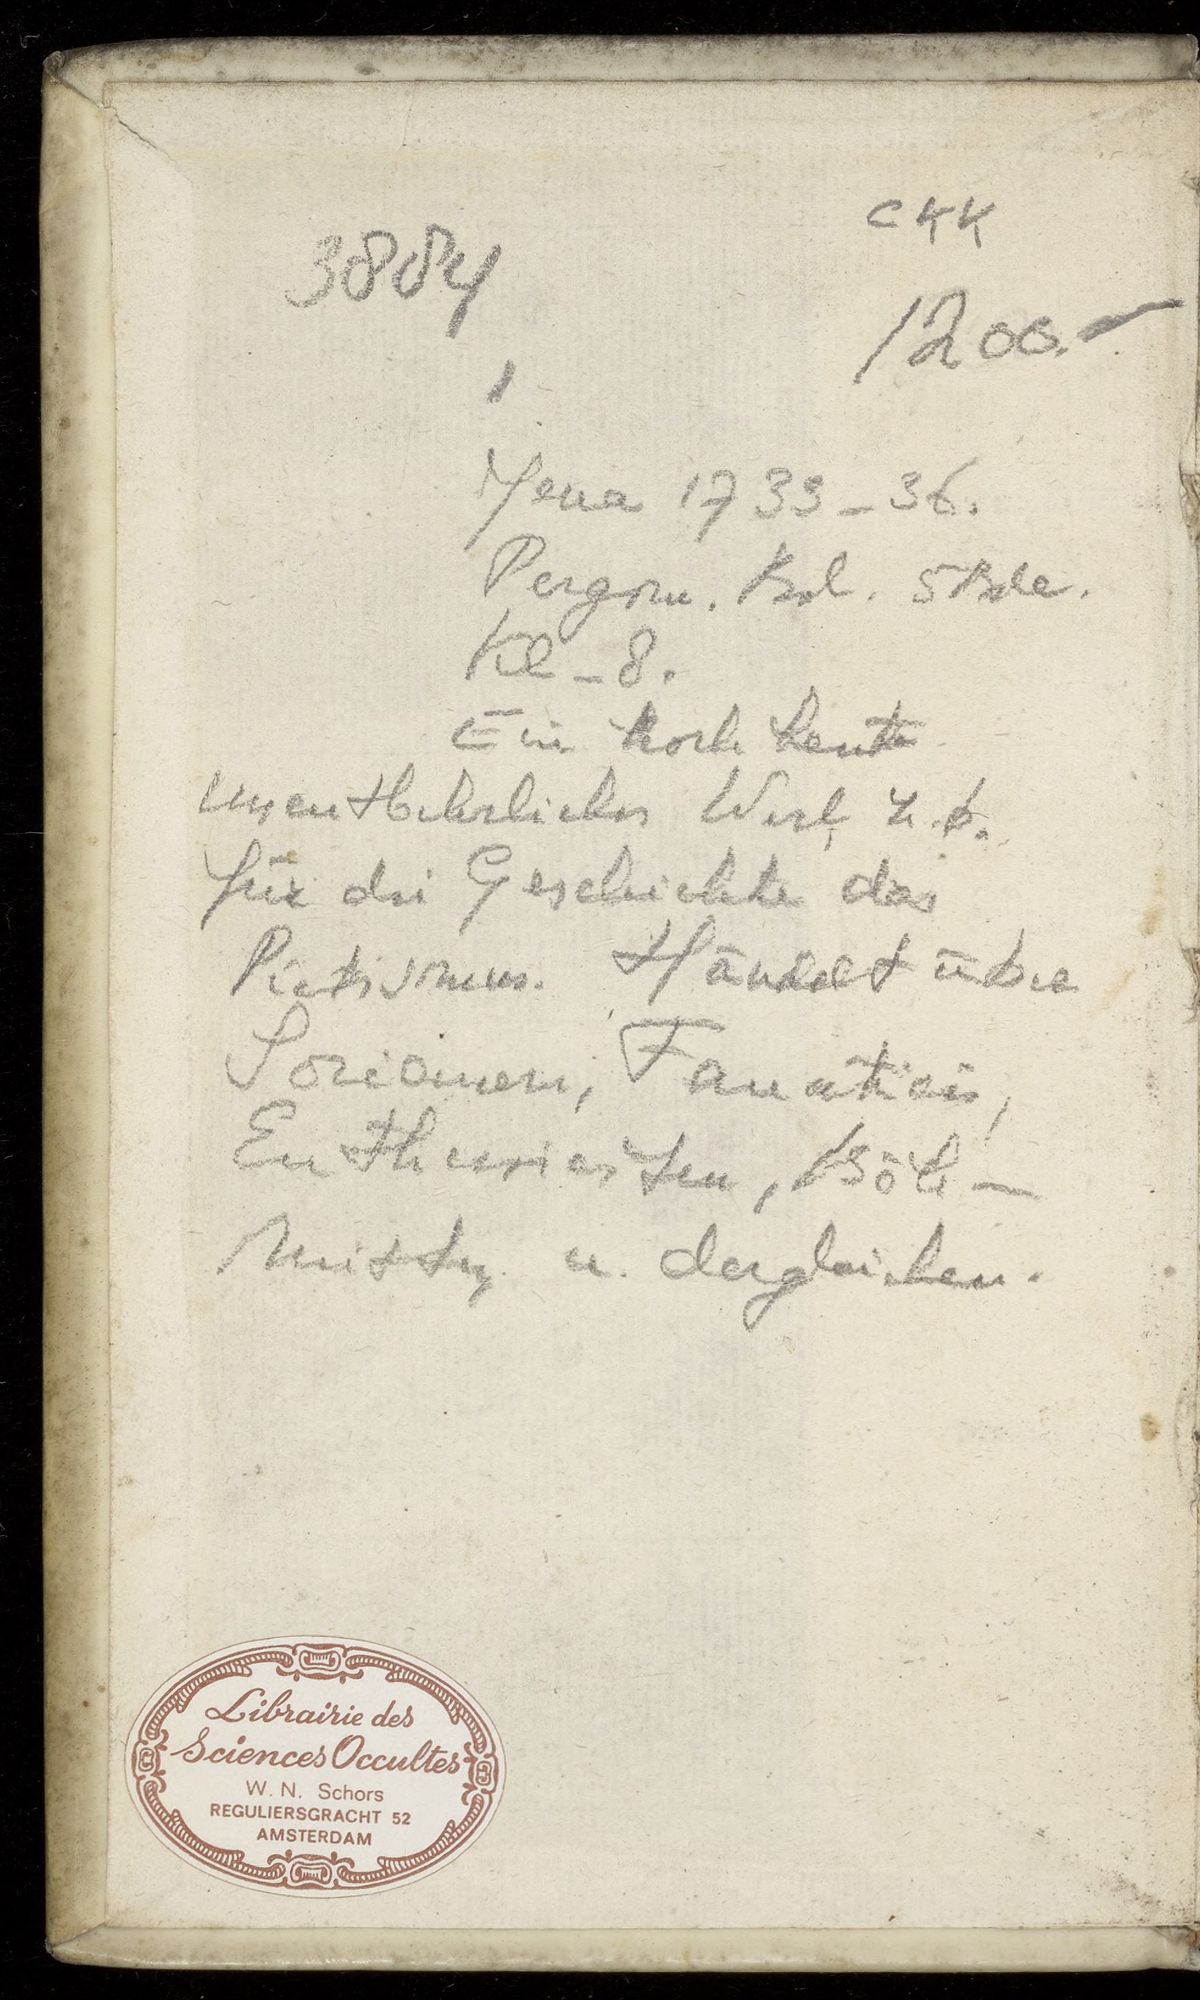 3884
CKK
1200.-
Jena 1733-36.
Pergm. Bd. 5 Bde.
Kl-8.
Ein noch heute
unentbehrliches Werk z.b.
für die Geschichte des
Pietismus. Handelt über
Socianern, Fanaticis,
Enthusiasten, Böh-
misty u. dergleichen.
Librairie des
Sciences Occultes
W. N. Schors
REGULIERSGRACHT 52
AMSTERDAM